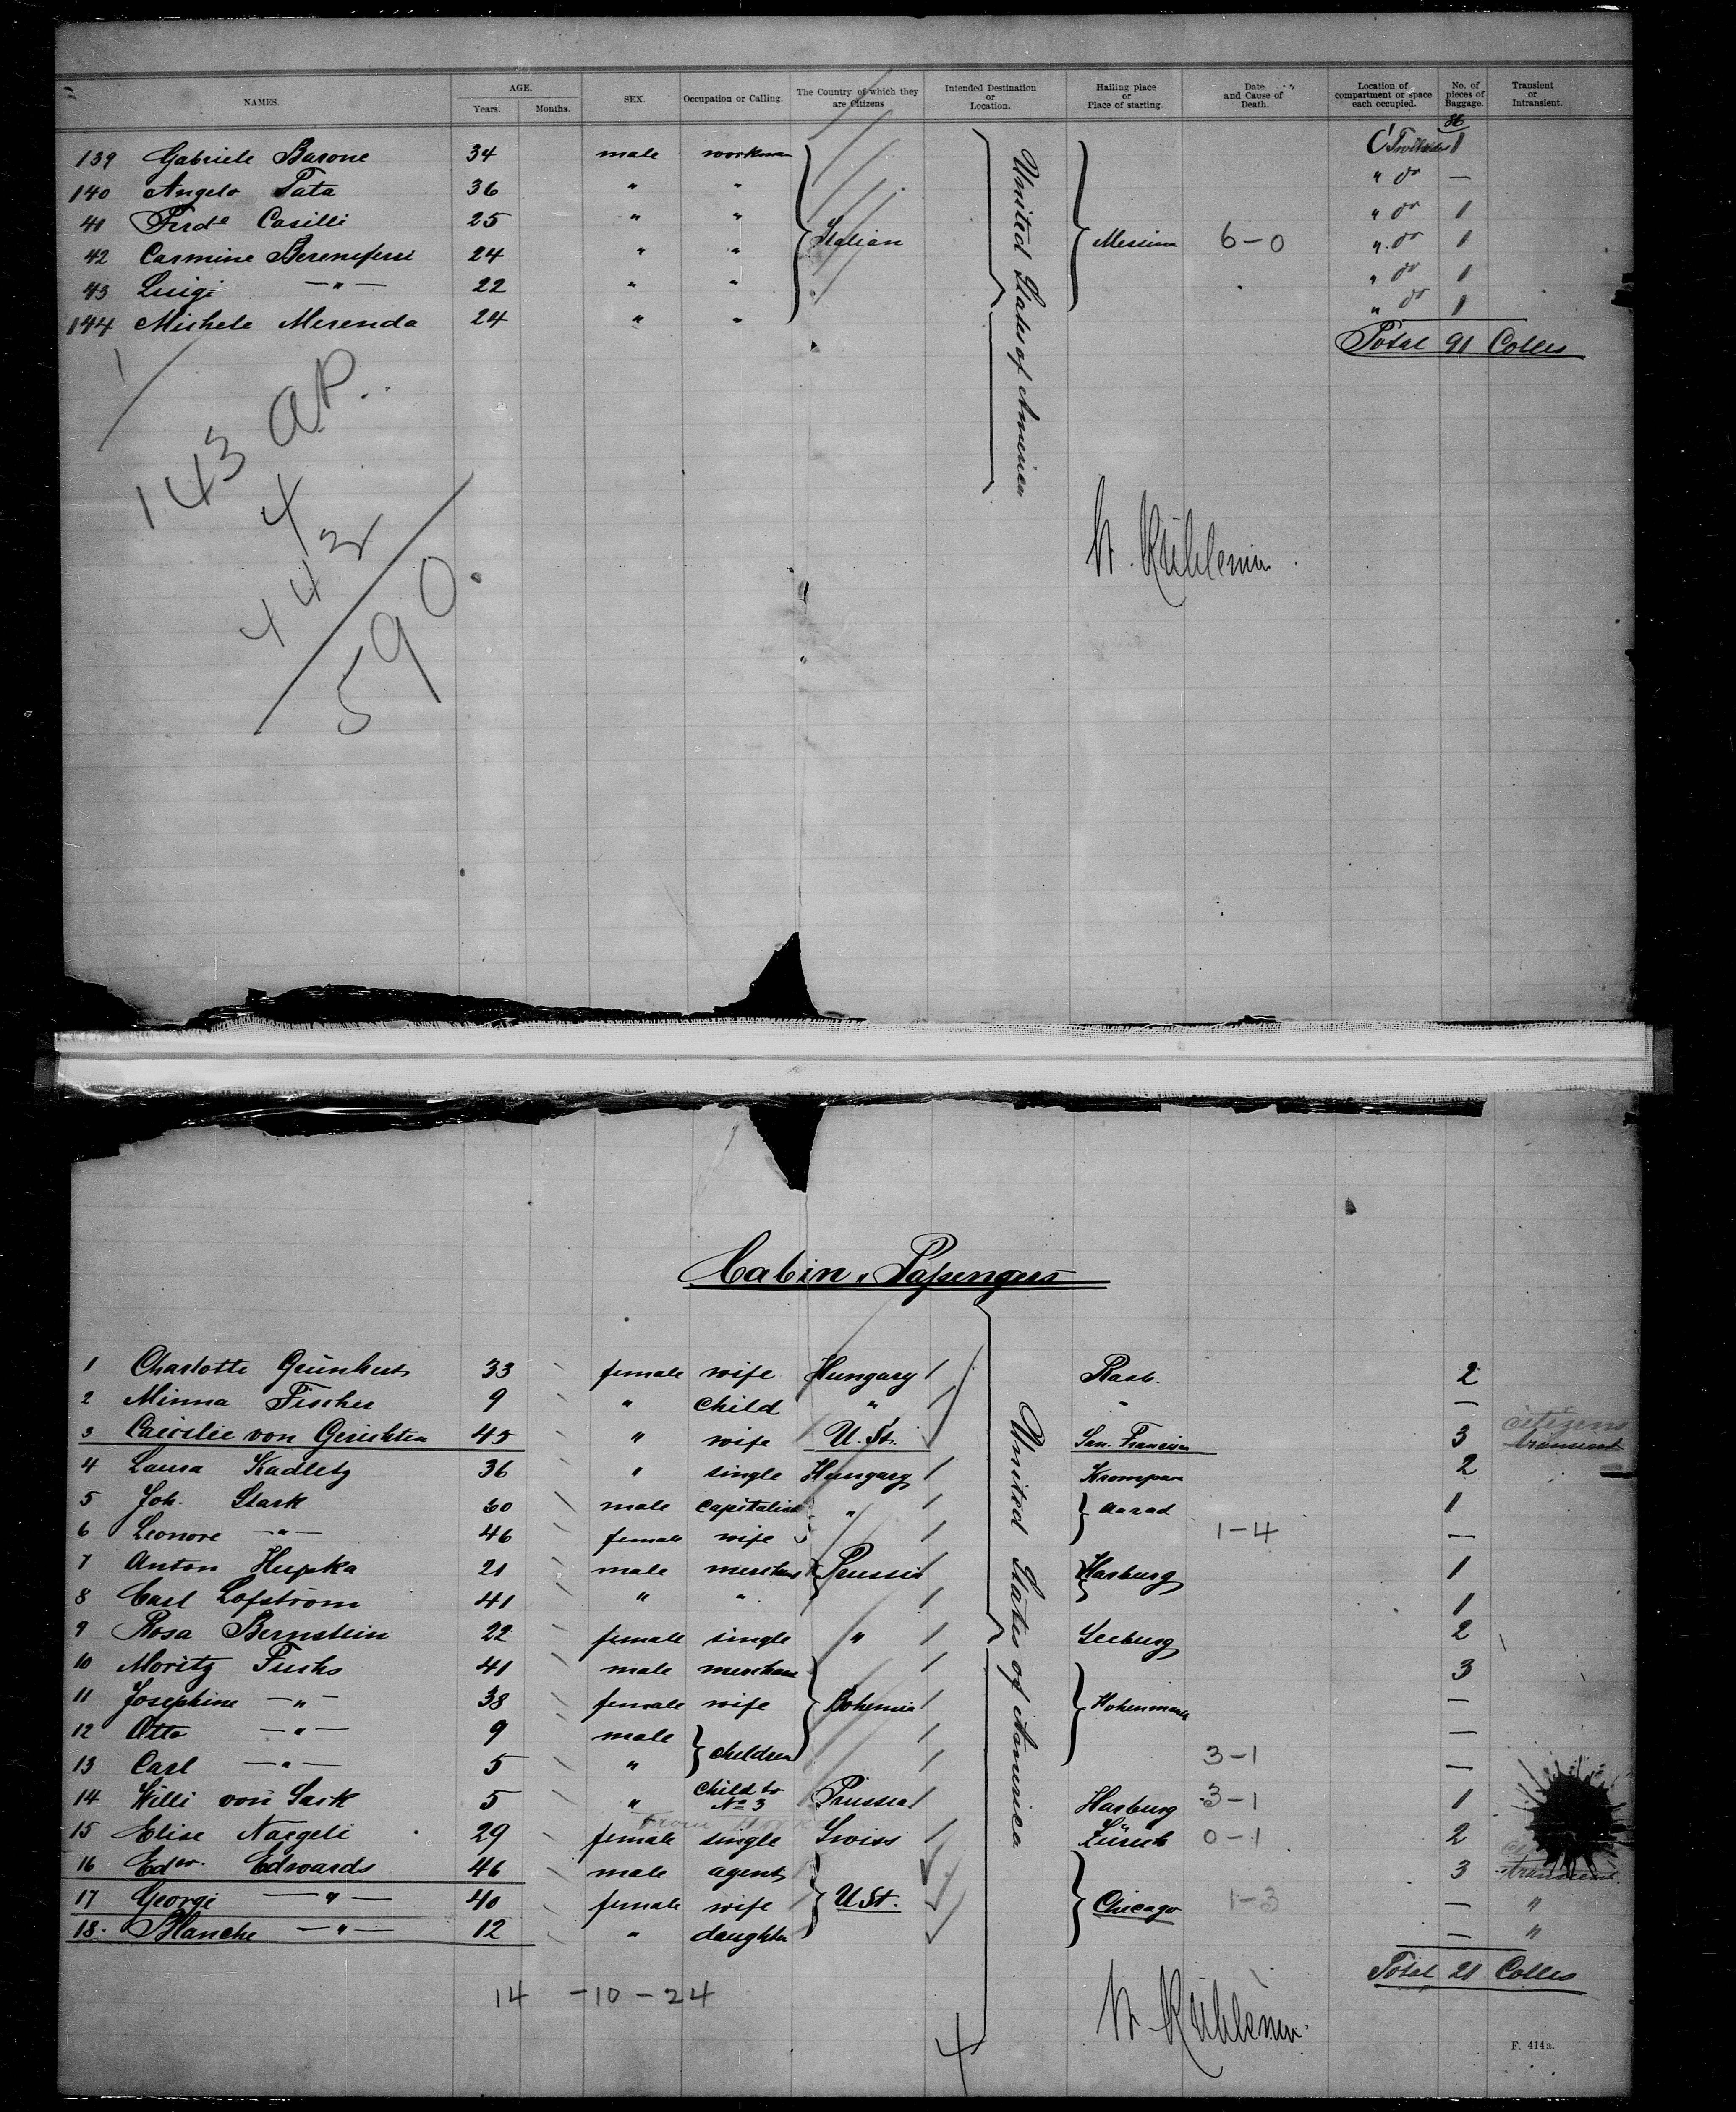 NAMES. AGE. Years. Months. SEX. Occupation or Calling. The Country of which they are Citizens Intended Destination or Location. Hailing place or Place of starting. Date and Cause of Death. Location of compartment or space each occupied. No. of pieces of Baggage. Transient or Intransient.
139 Gabriele Barone 34 male workman 1
140 Angelo Tata 36 " " " do —
41 Ferd Casilli 25 " " " do 1
42 Carmine 24 " " Italian Messina 6-0 " do 1
43 Luigi —"— 22 " " " do 1
144 Michele Merenda 24 " " " do 1
United States of America
Total 91 Colles
143 ap.
4
442
590.
Cabin Passengers
1 Charlotte 33 female wife Hungary Raab. 2
2 Minna Fischer 9 " child " " —
3 Caecilie von Gerichten 45 " wife U. St. San. Francisco 3 citizens transient
4 Laura Kadletz 36 " single Hungary Krompan 2
5 Joh. Stark 60 male capitalist " Aarad 1
6 Leonore —"— 46 female wife 1-4 —
7 Anton Hupka 21 male merchant Prussia Harburg 1
8 Carl Lofstrom 41 " " 1
9 Rosa Bernstein 22 female single " Seeburg 2
10 Moritz Fuchs 41 male merchant 3
11 Josephine —"— 38 female wife Bohemia —
12 Otto —"— 9 male children —
13 Carl —"— 5 " 3-1 —
14 Willi von 5 " child to No 3 Prussia Harburg 3-1 1
15 Elise Naegeli 29 female single Swiss Zürich 0-1 2
16 Edw. Edwards 46 male agent 3 transient
17 George —"— 40 female wife U St. Chicago 1-3 — "
18. Blanche —"— 12 " daughter — "
United States of America
Total 21 Colles
14 -10-24
4
F. 414a.